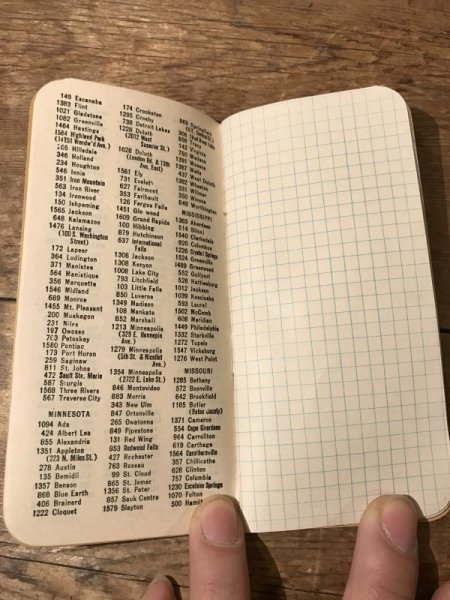 149 Escanaba
1383 Flint
1021 Gladstone
1082 Greenville
1464 Hastings
1584 Highland Park
(14151 Woodw'd Ave.)
105 Hillsdale
346 Holland
234 Houghton
546 Ionia
351 Iron Mountain
563 Iron River
134 Ironwood
150 Ishpeming
1565 Jackson
648 Kalamazoo
1476 Lansing
(100 S. Washington
Street)
172 Lapeer
364 Ludington
371 Manistee
564 Manistique
356 Marquette
1546 Midland
689 Monroe
1455 Mt. Pleasant
200 Muskegon
231 Niles
197 Owosso
Petoskey
1580 Pontiac
173 Port Huron
259 Saginaw
811 St. Johns
472 Sault Ste. Marie
587 Sturgis
1568 Three Rivers
567 Traverse City
MINNESOTA
1094 Ada
424 Albert Lea
855 Alexandria
1351 Appleton
(223 N. Miles St.)
278 Austin
135 Bemidji
1357 Benson
868 Blue Earth
406 Brainerd
1222 Cloquet
174 Crookston
1295 Crosby
735 Detroit Lakes
1228 Duluth
(2012 West
Superior St.)
1628 Duluth
(London Rd. & 13th
Ave. East)
1561 Ely
731 Eveleth
627 Fairmont
353 Faribault
126 Fergus Falls
1451 Glenwood
1609 Grand Rapids
100 Hibbing
879 Hutchinson
637 International
Falls
1306 Jackson
1308 Kenyon
1008 Lake City
793 Litchfield
103 Little Falls
850 Luverne
1349 Madison
108 Mankato
852 Marshall
1213 Minneapolis
(329 E. Hennepin
Ave.)
1279 Minneapolis
(5th St. & Nicollet
Ave.)
1354 Minneapolis
(2722 E. Lake St.)
846 Montevideo
883 Morris
343 New Ulm
847 Ortonville
265 Owatonna
849 Pipestone
131 Red Wing
853 Redwood Falls
427 Rochester
763 Roseau
99 St. Cloud
865 St. James
1356 St. Peter
857 Sauk Centre
1579 Slayton
869 Springfield
Thief River Falls
Tracy
142 Virginia
Wadena
Waseca
437 West Duluth
1392 Wheaton
Willmar
350 Winona
848 Worthington
MISSISSIPPI
1363 Aberdeen
514 Biloxi
1540 Clarksdale
920 Columbus
1228 Crystal Springs
1524 Greenville
1489 Greenwood
552 Gulfport
526 Hattiesburg
1012 Jackson
1039 Kosciusko
593 Laurel
1502 McComb
608 Meridian
1449 Philadelphia
1332 Starkville
1272 Tupelo
1547 Vicksburg
1276 West Point
MISSOURI
1285 Bethany
572 Boonville
642 Brookfield
1185 Butler
(Bates County)
1371 Cameron
554 Cape Girardeau
964 Carrollton
619 Carthage
1564 Caruthersville
357 Chillicothe
628 Clinton
757 Columbia
1230 Excelsior Springs
1070 Fulton
500